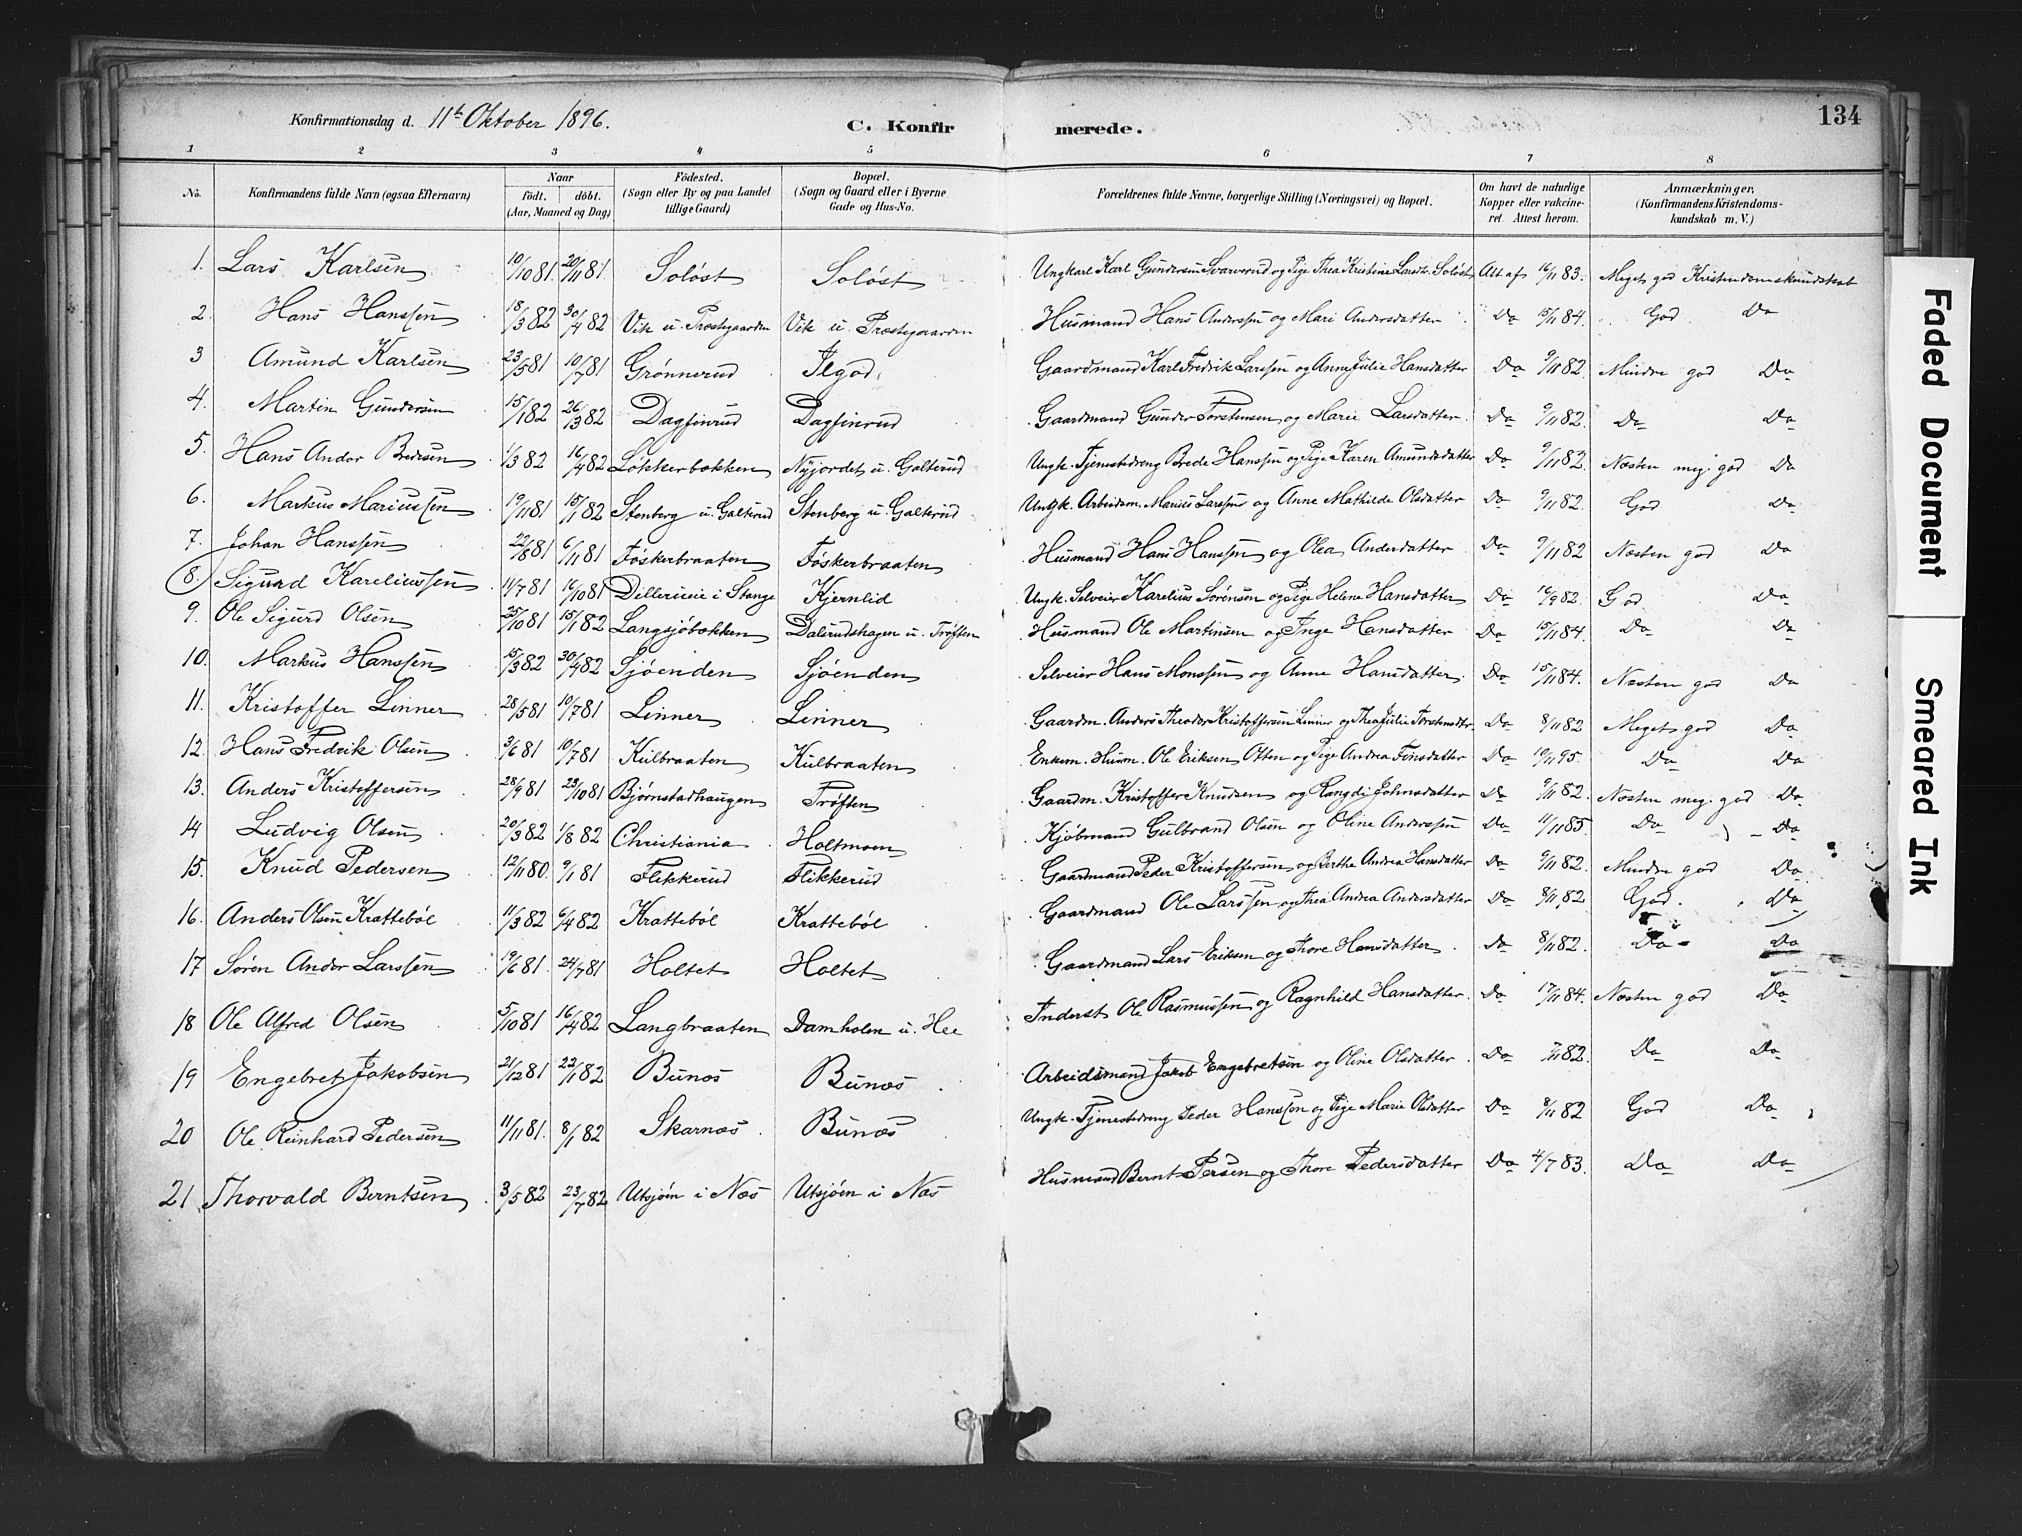 Konfirmationsdag d. 11te Oktober 1896. C. Konfirmerede. 134
1 2 3 4 5 6 7 8
No. Konfirmandens fulde Navn (ogsaa Efternavn) Naar født. døbt. (Aar, Maaned og Dag) Fødested. (Sogn eller By og paa Landet tillige Gaard) Bopæl. (Sogn og Gaard eller i Byerne Gade og Hus-No. Forældrenes fulde Navne, borgerlige Stilling (Næringsvei) og Bopæl. Om havt de naturlige Kopper eller vakcineret. Attest herom. Anmærkninger. (Konfirmandens Kristendomskundskab m. V.)
1. Lars Karlsen 10/10 81 20/11 81. Soløst Soløst Ungkarl Karl Gundersen Svarverud og Pige Thea Kristine Larsdt. Soløst Att af 16/11 83. Meget god Kristendomskundskab
2. Hans Hanssen 18/3 82 30/4 82 Vik u. Præstegaarden Vik u. Præstegaarden Husmand Hans Anderssen og Mari Andersdatter Do 15/11 84. God Do
3 Amund Karlsen 23/5 81 10/7 81 Grønnerud Ilgod. Gaardmand Karl Fredrik Larssen og Anne Julie Hansdatter Do 9/11 82. Mindre god Do
4. Martin Gundersen 15/1 82 26/3 82 Dagfinrud Dagfinrud Gaardmand Gunder Torstensen og Marie Larsdatter. Do 9/11 82. Do Do
5. Hans Andor Bredesen 1/3 82 16/4 82 Løkkerbækken Nyjordet u. Galterud Ungk. Tjenestedreng Brede Hanssen og Pige Karen Amundsdatter Do 9/11 82. Næsten meg. god Do
6. Markus Mariussen 19/11 81 15/1 82 Stenberg u. Galterud Stenberg u. Galterud Ungk. Arbeidsm. Marius Larssen og Anne Mathilde Olsdatter Do 9/11 82. God Do
7. Johan Hanssen 22/8 81 6/11 81 Føskerbraaten Føskerbraaten Husmand Hans Hanssen og Olea Andersdatter Do 9/11 82 Næsten god Do
8. Sigurd Kareliussen 11/7 81 16/10 81 i Stange Kjernlid Ungk. Selveier Karelius Sørensen og Pige Helene Hansdatter Do 16/9 82. God. Do
9. Ole Sigurd Olsen 25/10 81 15/1 82 Langsjøbækken Dalerudshagen u. Trøften Husmand Ole Martinsen og Inge Hansdatter Do 15/11 84. Do Do
10. Markus Hanssen 15/3 82 30/4 82 Sjøenden Sjøenden Selveier Hans Monssen og Anne Hansdatter. Do 15/11 84. Næsten god Do
11. Kristoffer Linner 28/5 81 10/7 81 Linner Linner Gaardm. Anders Theodor Kristoffersen Linner og Thea Julie Torstensdtr. Do 8/11 82 Meget god Do
12. Hans Fredrik Olsen 3/6 81 10/7 81 Kulbraaten Kulbraaten Enkem. Husm. Ole Eriksen Otten og Pige Andrea Tønsdatter Do 19/11 95. Do Do
13. Anders Kristoffersen 28/9 81 23/10 81 Bjørnstadhaugen Trøften Gaardm. Kristoffer Knudsen og Rangdi Johnsdatter Do 9/11 82. Næsten meg. god Do
14 Ludvig Olsen 20/3 82 1/8 82 Christiania Holtmoen Kjøbmand Gulbrand Olsen og Oline Anderssen Do 11/11 85. Do Do
15. Knud Pedersen 12/11 80. 9/1 81 Flikkerud Flikkerud Gaardmand Peder Kristoffersen og Berthe Andrea Hansdatter Do 9/11 82. Mindre god Do
16. Anders Olsen Krattebøl 11/3 82 6/4 82 Krattebøl Krattebøl Gaardmand Ole Larssen og Thea Andrea Andersdatter Do 8/11 82 God. Do
17 Søren Andor Larssen 19/6 81. 24/7 81 Holtet Holtet Gaardmand Lars Eriksen og Thore Hansdatter. Do 8/11 82. Do Do
18 Ole Alfred Olsen 5/10 81 16/4 82 Langbraaten Damholen u. Hee Inderst Ole Rasmussen og Ragnhild Hansdatter. Do 17/11 84. Næsten god Do
19 Engebret Jakobsen 21/12 81 22/1 82 Bunæs Bunæs Arbeidsmand Jakob Engebretsen og Oline Olsdatter. Do 7/11 82. Do Do
20 Ole Reinhard Pedersen 11/11 81. 8/1 82 Skarnæs Bunæs Ungk. Tjenestedreng Peder Hanssen og Pige Marie Olsdatter Do 8/11 82 God Do
21 Thorvald Berntsen 3/5 82 23/7 82 Utsjøen i Næs Utsjøen i Næs Husmand Bernt Persen og Thore Pedersdatter Do 4/7 83. Do Do
Faded Document
Smeared Ink